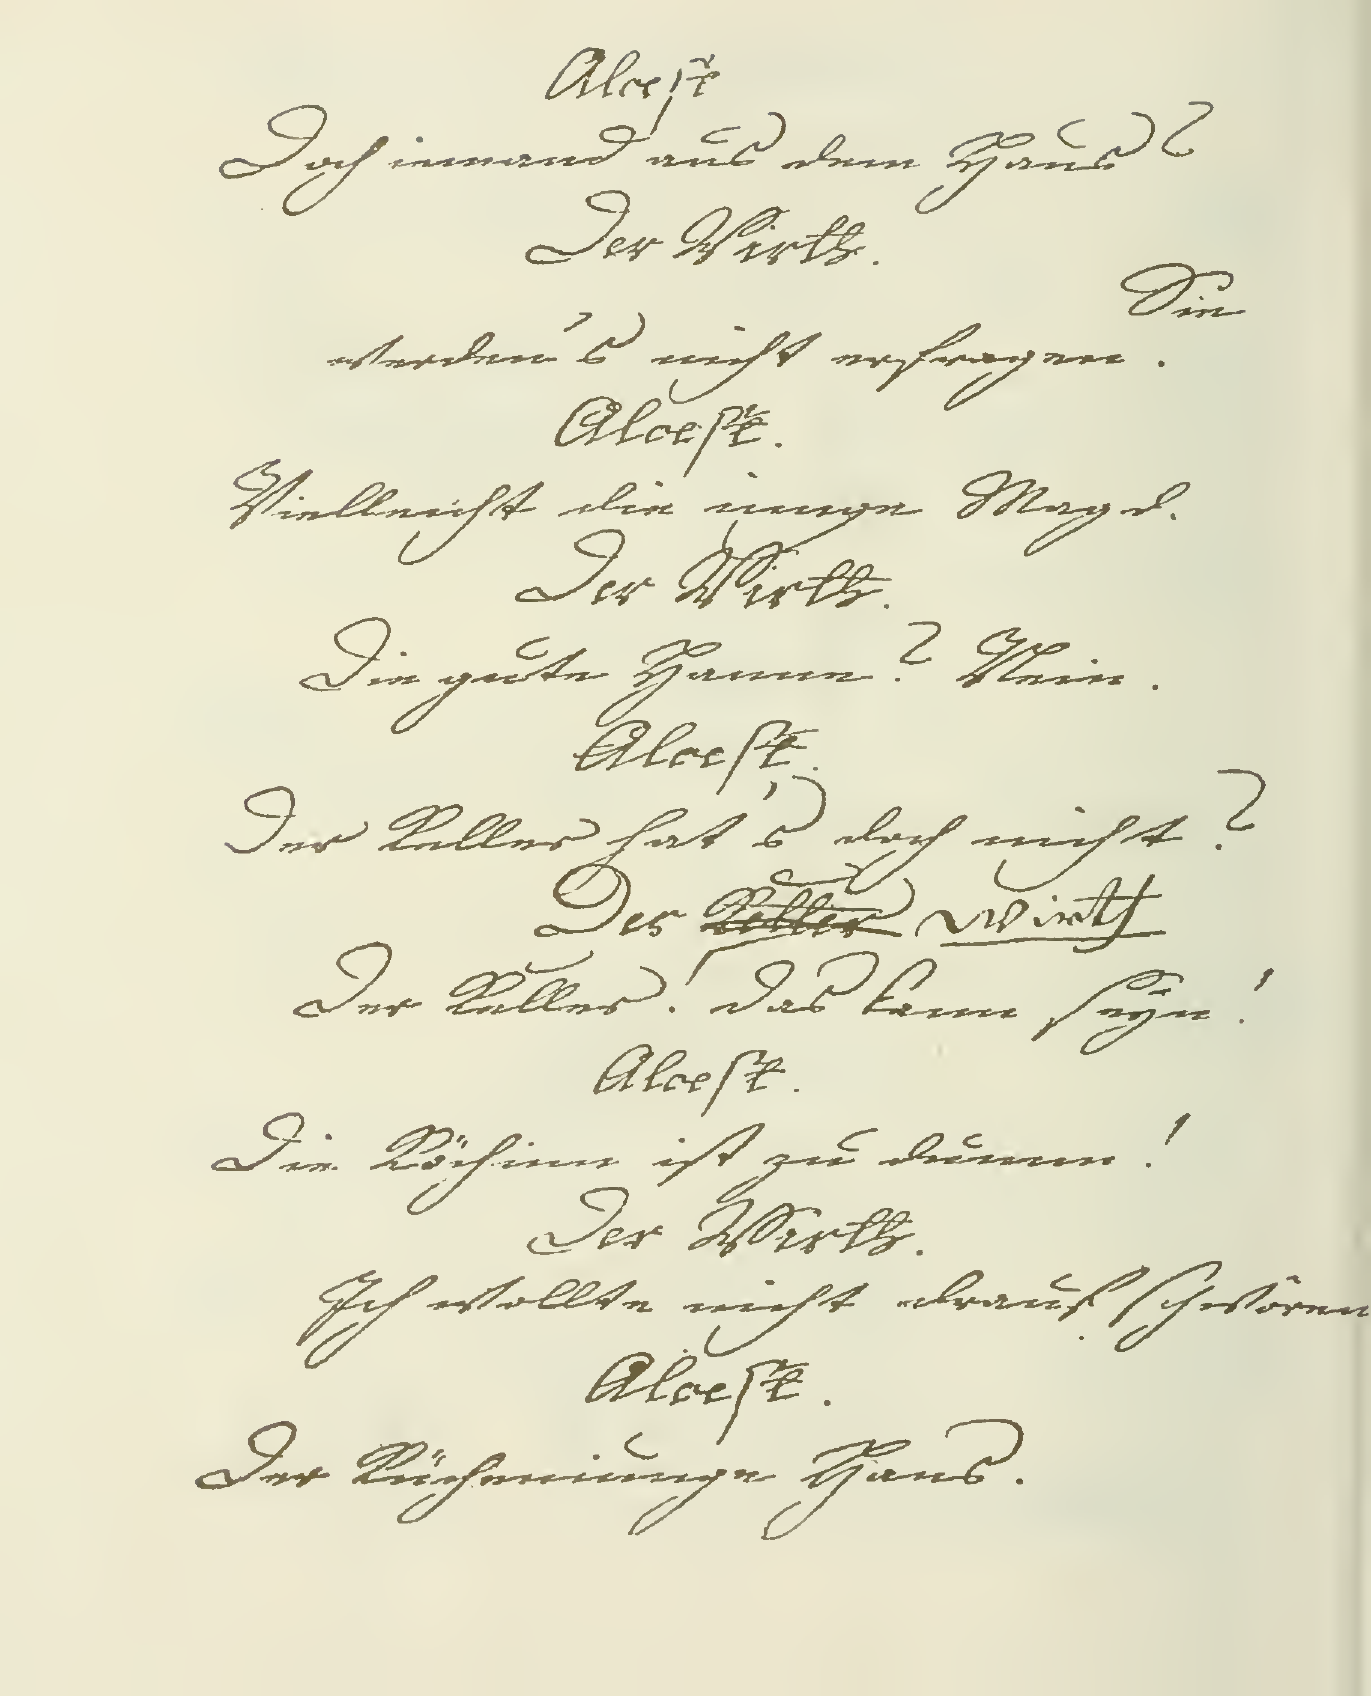 Alcest
Doch iemand aus dem Haus?
Der Wirth.
Sie
werden's nicht erfragen.
Alcest.
Vielleicht die iunge Magd.
Der Wirth.
Die gute Hanne? Nein.
Alcest.
Der Keller hat's doch nicht?
Der Keller Wirth
Der Keller! das kann seyn!
Alcest.
Die Köchinn ist zu dumm!
Der Wirth.
Ich wollte nicht drauf schwören
Alcest.
Der Kücheniunge Hans.